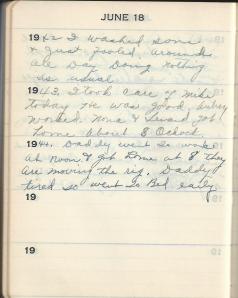 JUNE 18
1942 I washed some
& just fooled around
all Day Doing nothing
as usual
1943. I took care of Mike
today He was good,
worked. Nona & got
home about 8 Oclock.
1944. Daddy went to work
at noon & got home at 8 they
are moving the rig. Daddy
tired so went to Bed early
19
19